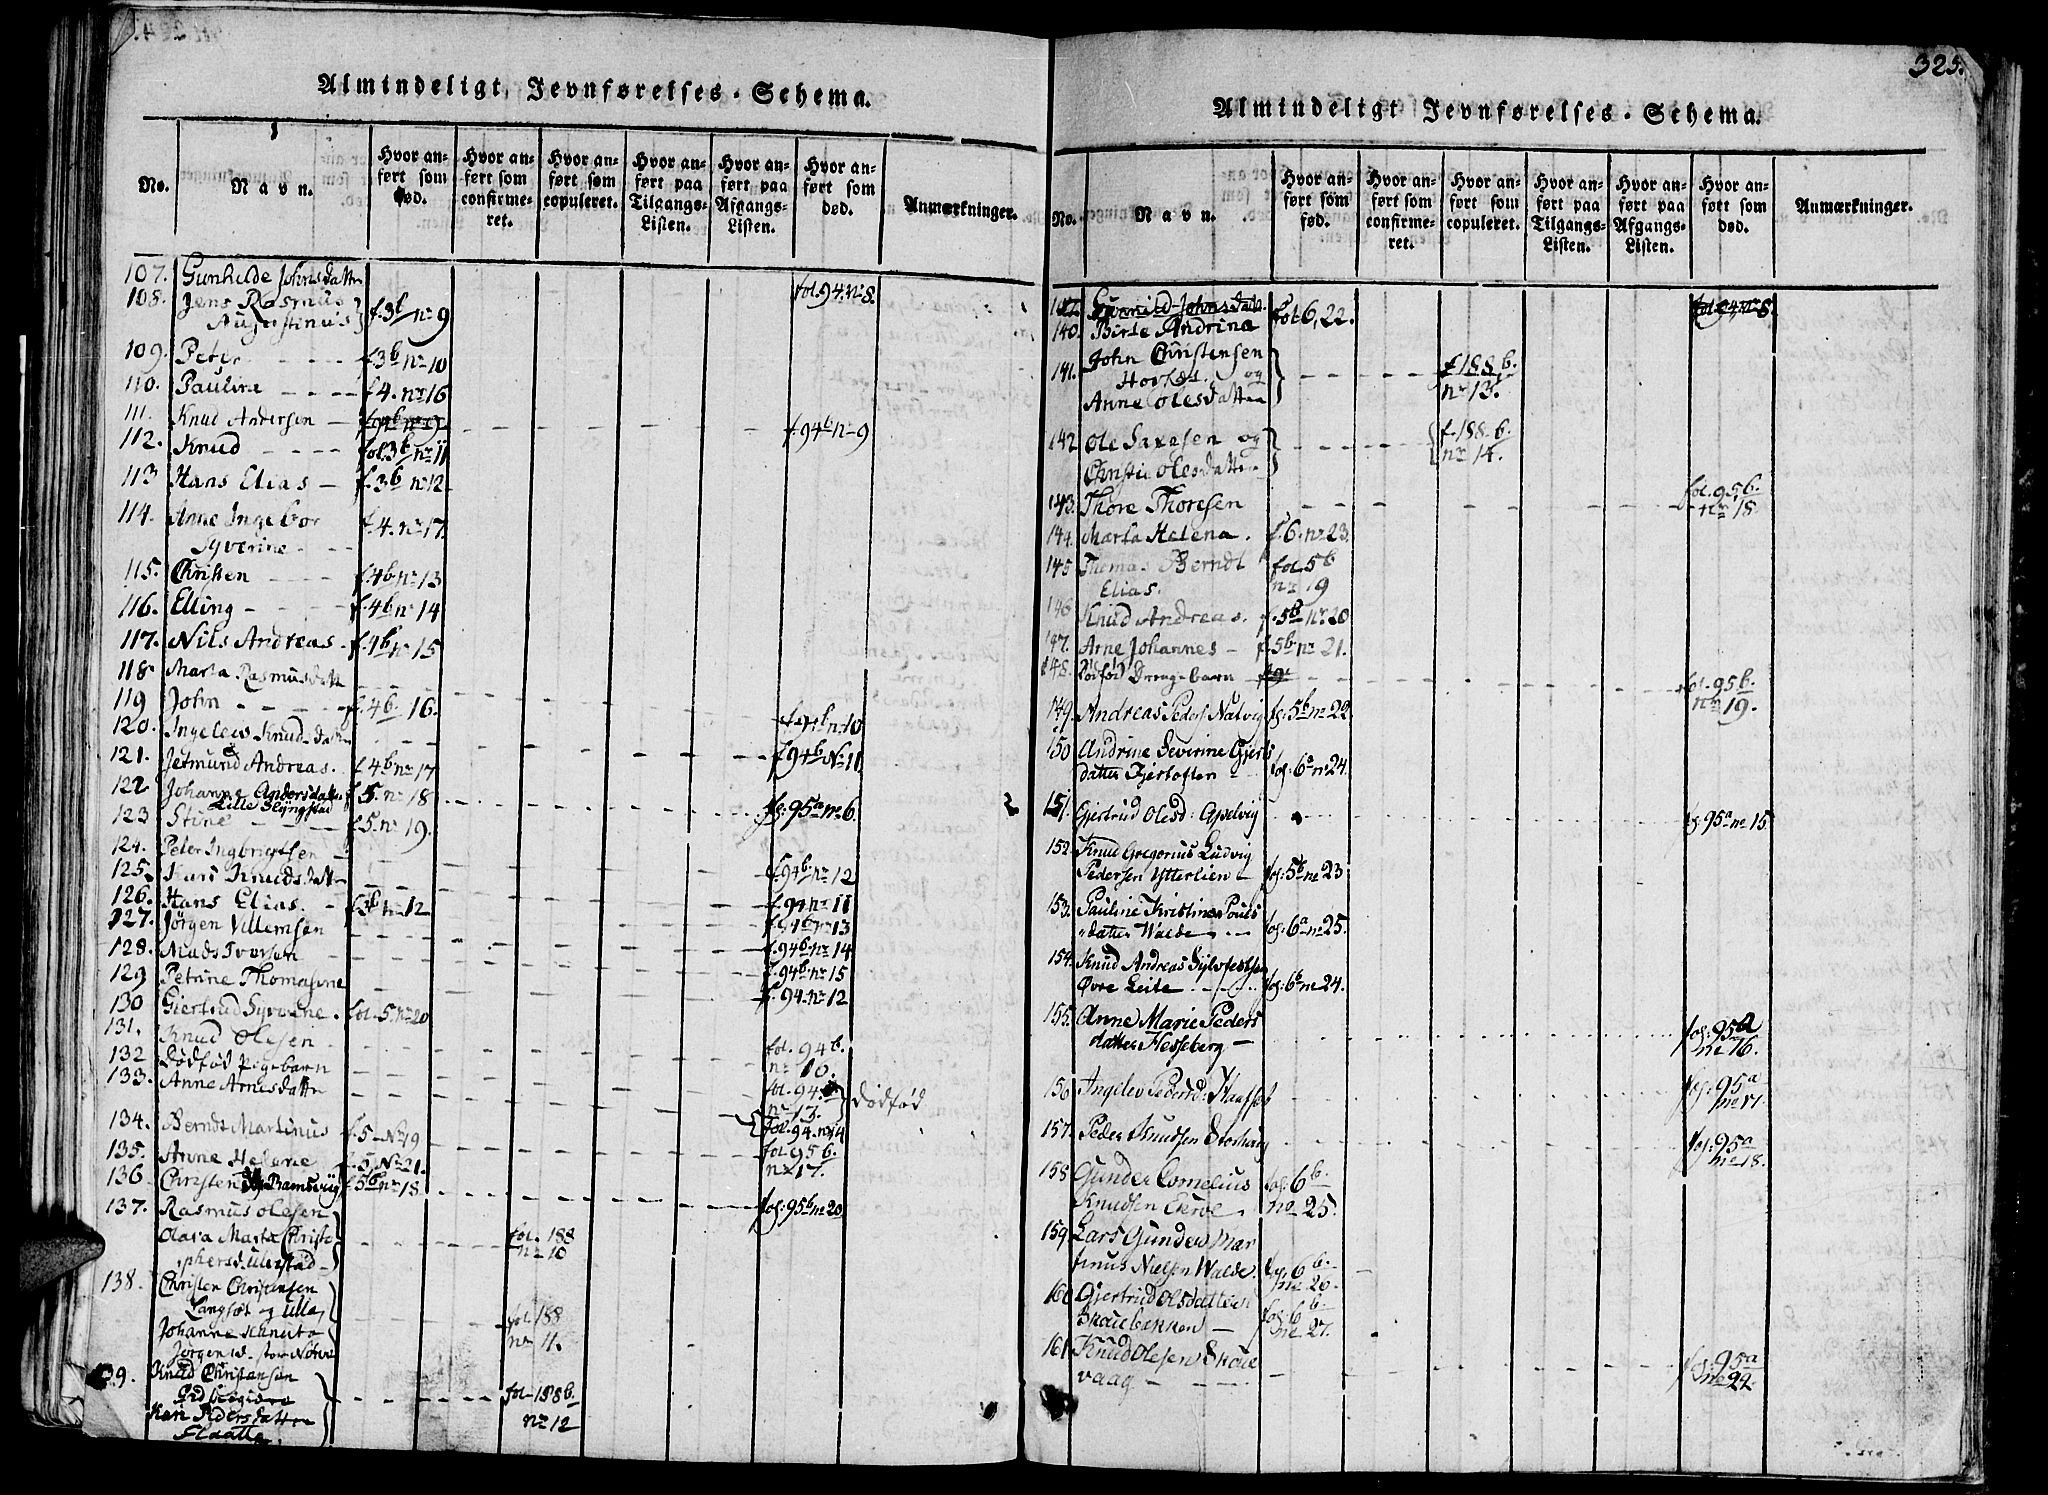 325.
Almindeligt Jevnførelses-Schema.
No.
Navn.
Hvor anført som fød.
Hvor anført som confirmeret.
Hvor anført som copuleret.
Hvor anført paa Tilgangs-Listen.
Hvor anført paa Afgangs-Listen.
Hvor anført som død.
Anmærkninger.
107. Gunhilde Johnsdatter fol. 94. nr 8.
108. Jens Rasmus
Augustinus f. 3b nr 9
109. Peter f. 3b nr 10
110. Pauline f. 4. nr 16
111. Knud Andersen f. 94b nr 9
112. Knud fol. 3b nr 11
113 Hans Elias f. 3b nr 12
114. Anne Ingebor
Syverine f. 4. nr 17
115. Christen f. 4b nr 13
116. Elling f. 4b nr 14
117. Nils Andreas f. 4b nr 15
118. Marta Rasmusdatt f. 94b nr 10
119 John f. 4b. 16.
120. Ingelew Knudsdatter f. 94b No 11
121. Jetmund Andreas. f. 4b nr 17
122 Johanne Andersdatter f. 5. nr 18 fol: 95a no 6.
Lille Slyngstad
123 Stine f. 5. nr 19.
124. Peter Ingbrigtsen f. 94b nr 12
125. Kari Knudsdatter f. 94 nr 11
126. Hans Elias. f. 3b nr 12 f. 94b nr 13
127. Jørgen Villemsen f. 94b nr 14
128. Mads Iversen f. 94b nr 15
129 Petrine Thomasine f. 94 nr 12
130 Giertrud Syverine. fol. 5. nr 20
131. Knud Olesen fol. 94b. nr 16.
132 Dødfød Pigebarn fol. 94. nr 13. Dødfød
133. Anne Arnesdatter fol. 94. nr 14
134. Berndt Martinus f. 5. No 19 fol 95b. nr 17.
135. Anne Helene f. 5. No 21.
136 Christen Ramsviig f. 5b nr 18. fol: 95b no 20
137. Rasmus Olesen
Marta Christo
phersd: Ulerstad fol. 188 nr 10
138. Christen Christensen
Langsæt og Ulla
Johanne
Jørgend. Nørve fol 188 nr 11.
139. Knud Christensen
Kari Pedersdatter
Flaatte fol. 188b. nr 12
Almindeligt Jevnførelses-Schema.
No.
Navn.
Hvor anført som fød.
Hvor anført som confirmeret.
Hvor anført som copuleret.
Hvor anført paa Tilgangs-Listen.
Hvor anført paa Afgangs-Listen.
Hvor anført som død.
Anmærkninger.
Gunnild Johnsdatt. fol 94 nr 8.
140. Birte Andrina fol 6, 22.
141. John Christensen
og
Anne Olesdatter f. 188b. nr 13.
142 Ole Saxesen og
Christie Olesdatter f. 188b. nr 14.
143. Thore Thoresen fol. 95b. nr 18
144. Marta Helena. f. 6. nr 23.
145 Thomas Berndt
Elias. fol. 5b nr 19
146 Knud Andreas. f. 5b nr 20
147. Arne Johannes f. 5b nr 21.
148. Dødfød Drengebarn fol. 95b. nr 19.
149. Andreas Peders: Natvig fol: 5b no 22
150 Andrine Severine Gjerts
datter Gjertoften fol: 6a no 24.
151. Gjertrud Olesd: Gjselvig fol: 95a no 15.
152. Knud Gregorius Ludvig
Pedersen Ytterlien fol: 5b no 23
153. Pauline Kristine Pouls
datter Walde fol: 6a no 25.
154. Knud Andreas Sylvestsen
Øvre Leite fol: 6b no 24.
155. Anne Marie Peders
datter Hesseberg fol: 95a no 16.
156 Ingelev Pedersd: fol: 95a no 17.
157. Peder Knudsen Storhaug fol: 95a no 18.
158 Gunder Cornelius
Knudsen fol: 6b. no 25.
159. Lars Gunder Mar
tinus Nielsen Walde. fol: 6b. no 26.
160 Gjertrud Olsdatter
Skouebakken fol: 6b. no 27.
161 Knud Olesen Skoue
vaag fol: 95a no 22.